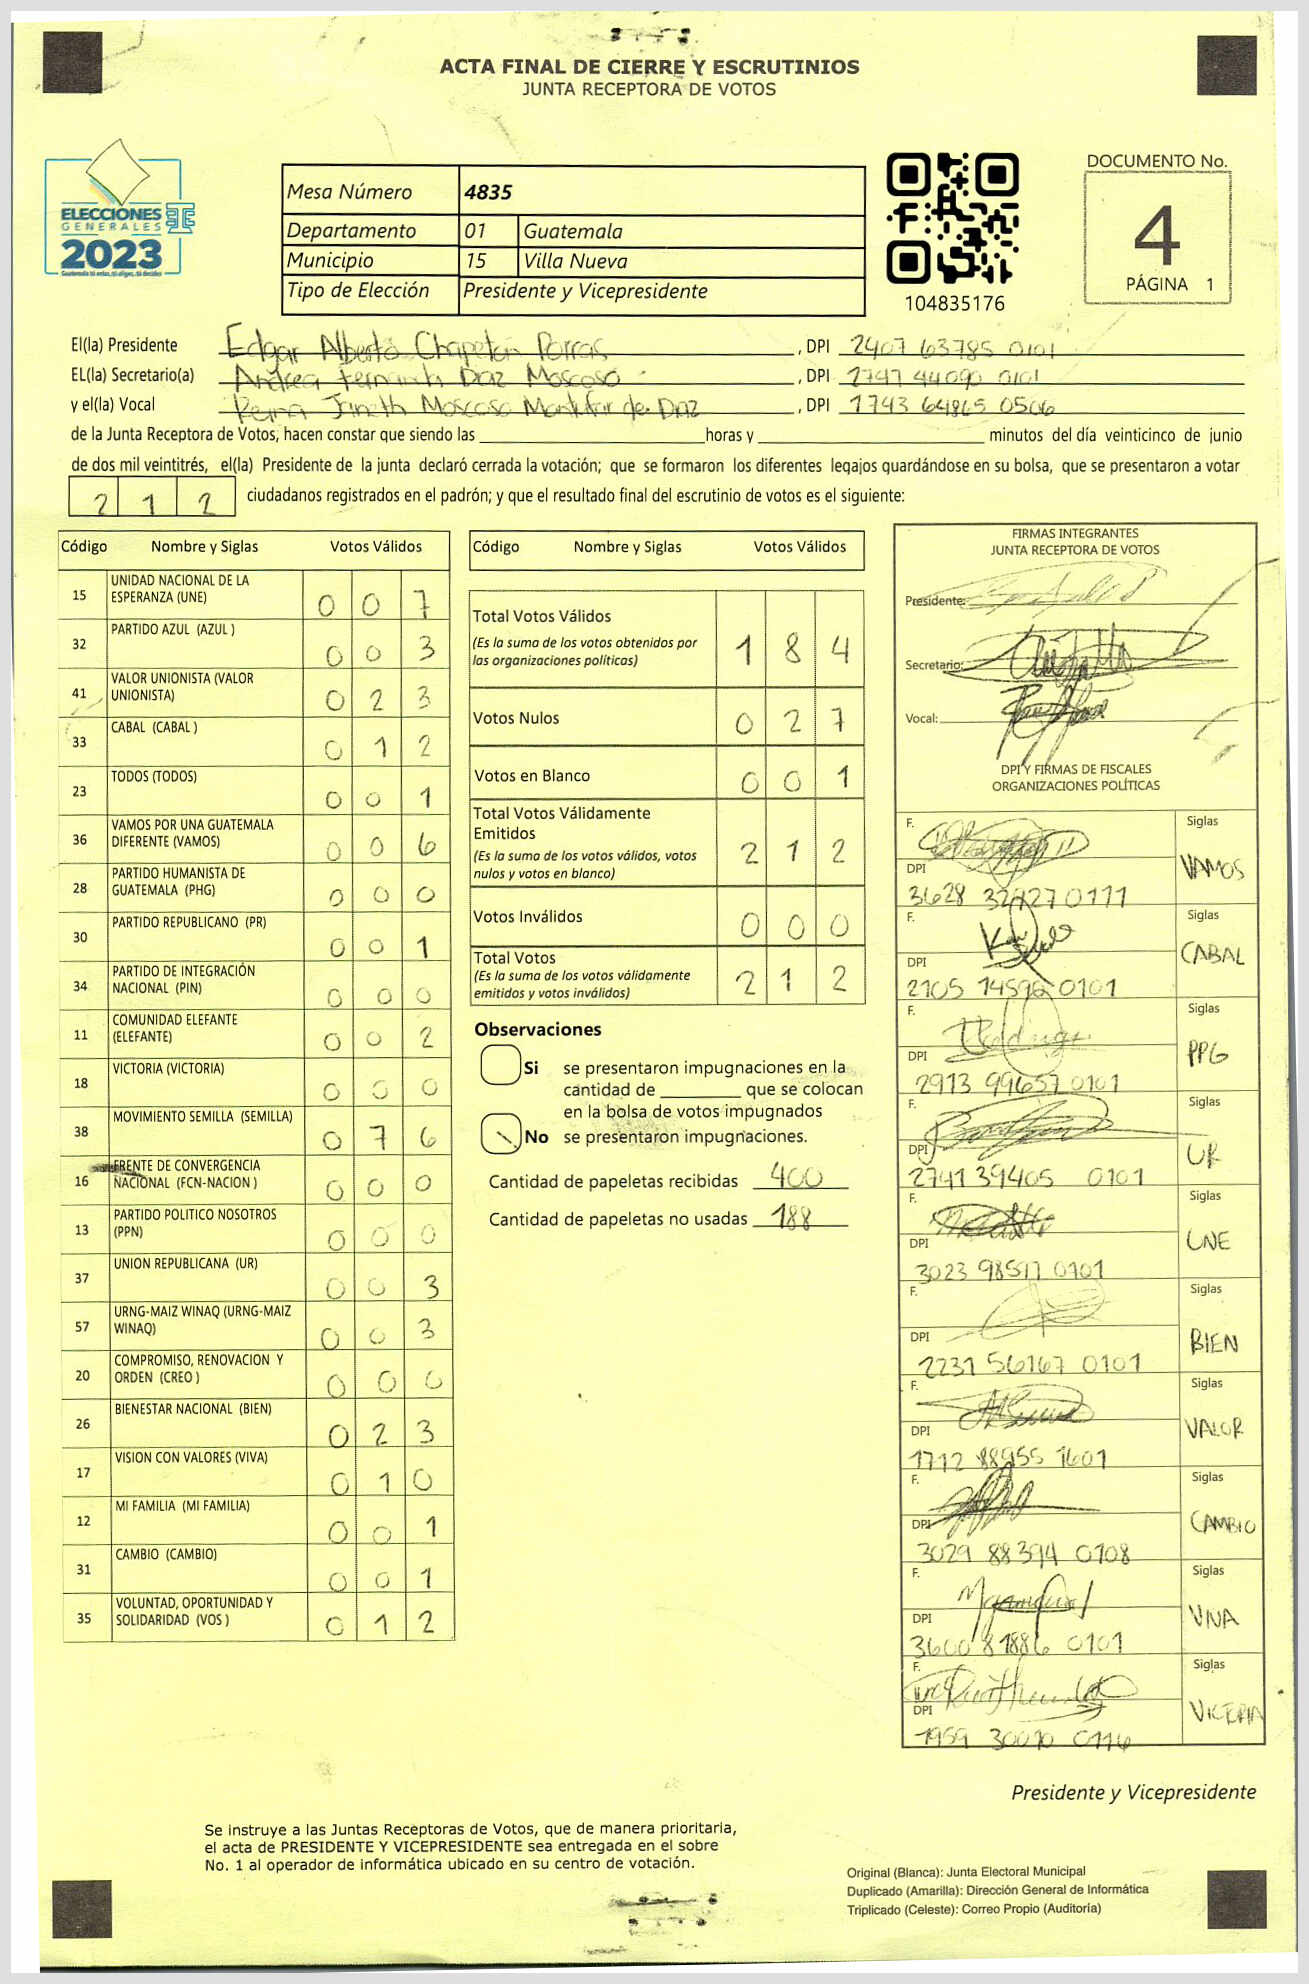 ACTA FINAL DE CIERRE Y ESCRUTINIOS
JUNTA RECEPTORA DE VOTOS
ELECCIONES
GENERALES
2023
Mesa Número 4835
Departamento 01 Guatemala
Municipio 15 Villa Nueva
Tipo de Elección Presidente y Vicepresidente
104835176
DOCUMENTO No.
4
PÁGINA 1
El(la) Presidente Edgar Alberto Chapetón Porras, DPI 2407 63785 0101
EL(la) Secretario(a) Andrea Fernanda Díaz Moscoso, DPI 2747 44090 0101
y el(la) Vocal Reina Janeth Moscoso Montufar de Díaz, DPI 1743 64865 0506
de la Junta Receptora de Votos, hacen constar que siendo las horas y minutos del día veinticinco de junio
de dos mil veintitrés, el(la) Presidente de la junta declaró cerrada la votación; que se formaron los diferentes legajos guardándose en su bolsa, que se presentaron a votar
2 1 2 ciudadanos registrados en el padrón; y que el resultado final del escrutinio de votos es el siguiente:
Código Nombre y Siglas Votos Válidos
15 UNIDAD NACIONAL DE LA ESPERANZA (UNE) 0 0 7
32 PARTIDO AZUL (AZUL ) 0 0 3
41 VALOR UNIONISTA (VALOR UNIONISTA) 0 2 3
33 CABAL (CABAL ) 0 1 2
23 TODOS (TODOS) 0 0 1
36 VAMOS POR UNA GUATEMALA DIFERENTE (VAMOS) 0 0 6
28 PARTIDO HUMANISTA DE GUATEMALA (PHG) 0 0 0
30 PARTIDO REPUBLICANO (PR) 0 0 1
34 PARTIDO DE INTEGRACIÓN NACIONAL (PIN) 0 0 0
11 COMUNIDAD ELEFANTE (ELEFANTE) 0 0 2
18 VICTORIA (VICTORIA) 0 0 0
38 MOVIMIENTO SEMILLA (SEMILLA) 0 7 6
16 FRENTE DE CONVERGENCIA NACIONAL (FCN-NACION ) 0 0 0
13 PARTIDO POLITICO NOSOTROS (PPN) 0 0 0
37 UNION REPUBLICANA (UR) 0 0 3
57 URNG-MAIZ WINAQ (URNG-MAIZ WINAQ) 0 0 3
20 COMPROMISO, RENOVACION Y ORDEN (CREO ) 0 0 0
26 BIENESTAR NACIONAL (BIEN) 0 2 3
17 VISION CON VALORES (VIVA) 0 1 0
12 MI FAMILIA (MI FAMILIA) 0 0 1
31 CAMBIO (CAMBIO) 0 0 1
35 VOLUNTAD, OPORTUNIDAD Y SOLIDARIDAD (VOS ) 0 1 2
Código Nombre y Siglas Votos Válidos
Total Votos Válidos 1 8 4
(Es la suma de los votos obtenidos por
las organizaciones políticas)
Votos Nulos 0 2 7
Votos en Blanco 0 0 1
Total Votos Válidamente
Emitidos 2 1 2
(Es la suma de los votos válidos, votos
nulos y votos en blanco)
Votos Inválidos 0 0 0
Total Votos 2 1 2
(Es la suma de los votos válidamente
emitidos y votos inválidos)
Observaciones
Si se presentaron impugnaciones en la
cantidad de que se colocan
en la bolsa de votos impugnados
No se presentaron impugnaciones.
Cantidad de papeletas recibidas 400
Cantidad de papeletas no usadas 188
FIRMAS INTEGRANTES
JUNTA RECEPTORA DE VOTOS
Presidente:
Secretario:
Vocal:
DPI Y FIRMAS DE FISCALES
ORGANIZACIONES POLÍTICAS
F. Siglas
DPI VAMOS
3628 32927 0111
F. Siglas
DPI CABAL
2105 14596 0101
F. Siglas
DPI PPG
2913 99657 0101
F. Siglas
DPI UR
2741 39405 0101
F. Siglas
DPI UNE
3023 98517 0101
F. Siglas
DPI BIEN
2231 56167 0101
F. Siglas
DPI VALOR
1712 88955 1601
F. Siglas
DPI CAMBIO
3029 88394 0108
F. Siglas
DPI VIVA
3600 81886 0101
F. Siglas
DPI VICTORIA
1959 30070 0116
Presidente y Vicepresidente
Se instruye a las Juntas Receptoras de Votos, que de manera prioritaria,
el acta de PRESIDENTE Y VICEPRESIDENTE sea entregada en el sobre
No. 1 al operador de informática ubicado en su centro de votación.
Original (Blanca): Junta Electoral Municipal
Duplicado (Amarilla): Dirección General de Informática
Triplicado (Celeste): Correo Propio (Auditoría)